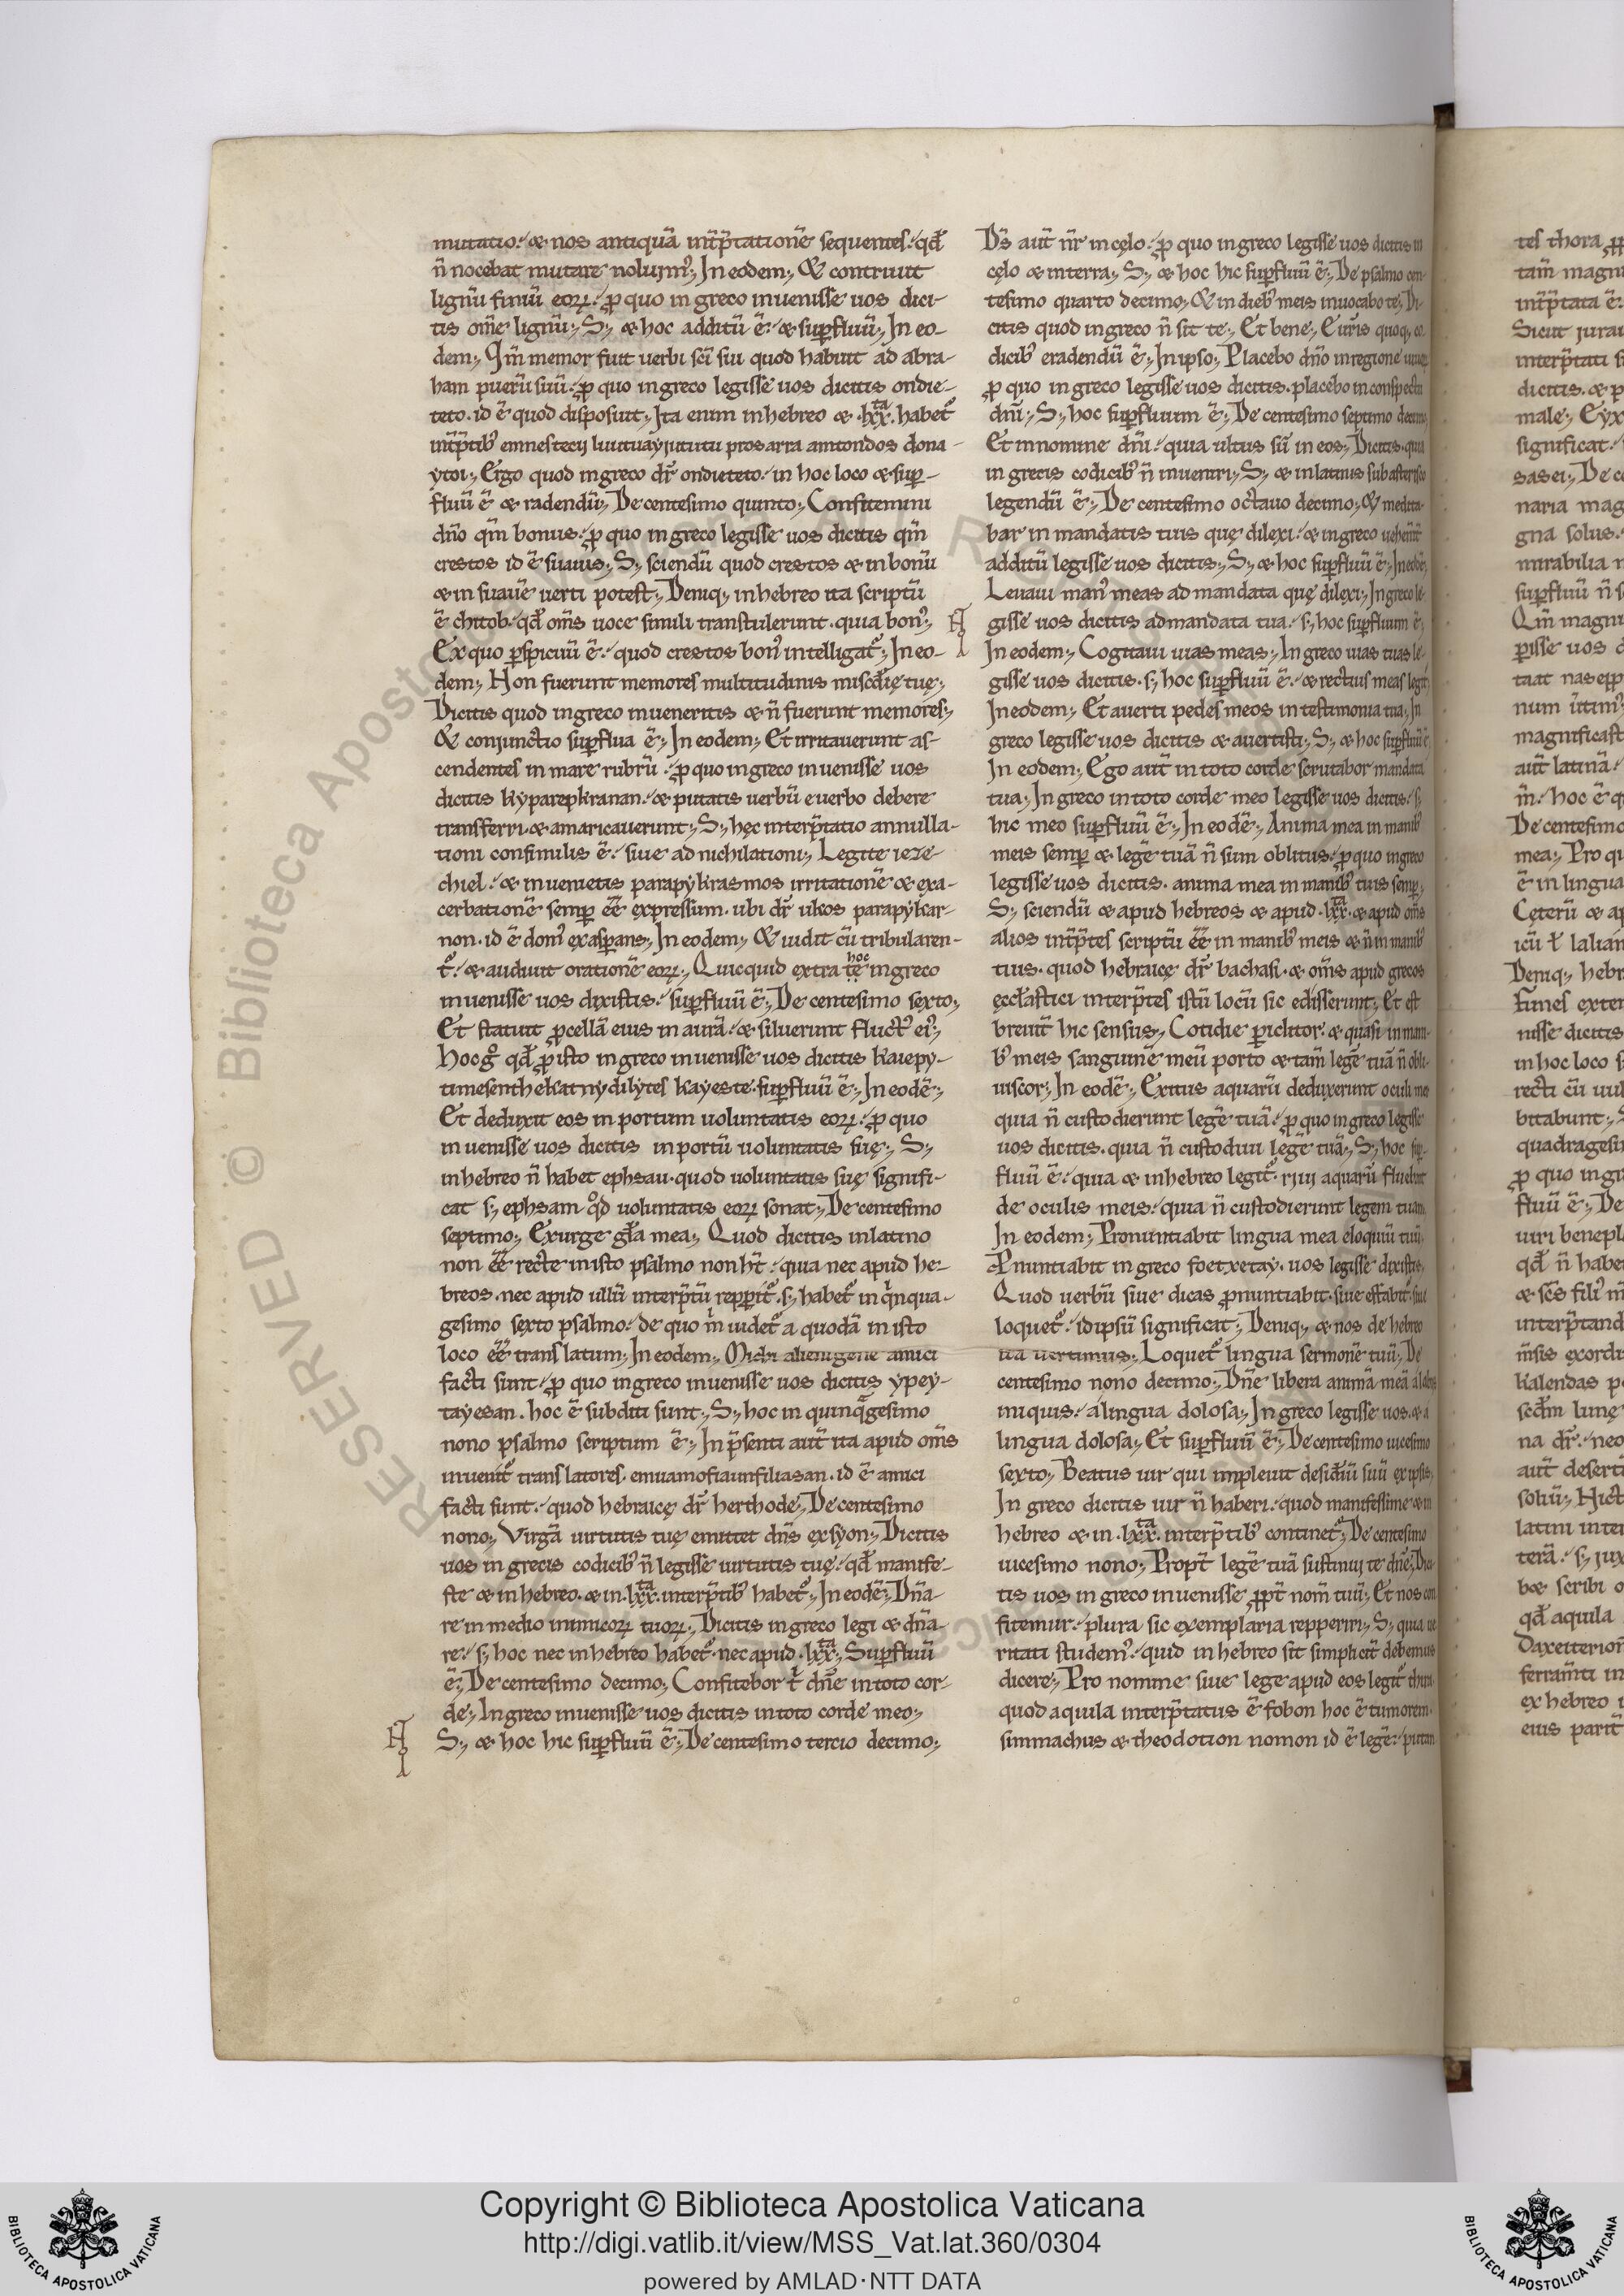 mutatio. & nos antiquã int̃p̃tationẽ sequentes. qđ
ñ nocebat mutare noluimꝰ; In eodem; & contriuit
lignũ finiũ eoꝝ. ꝓ quo in greco inuenisse uos dici-
tis om̃e lignũ; S; & hoc additũ ẽ. & suꝑfluũ; In eo-
dem; Qm̃ memor fuit uerbi sc̃i sui quod habuit ad abra-
ham puerũ suũ. ꝓ quo in greco legisse uos dicitis ondie-
teto. id ẽ quod disposuit; Ita enim in hebreo & .lxx.ta habet᷑
fluũ ẽ & radendũ; De centesimo quinto; Confitemini
dño qm̃ bonus. ꝓ quo in greco legisse uos dicitis qm̃
crestos id ẽ suauis; S; sciendũ quod crestos & in bonũ
& in suauẽ uerti potest; Deniq; in hebreo ita scriptũ
ẽ chitob. qđ om̃s uoce simili transtulerunt. quia bonꝰ;
Ex quo ꝑspicuũ ẽ. quod crestos bonꝰ intelligat᷑; In eo-
dem; Non fuerunt memores multitudinis misc̃dię tuę;
Dicitis quod in greco inueneritis & ñ fuerunt memores;
& coniunctio suꝑflua ẽ; In eodem; Et irritauerunt as-
cendentes in mare rubrũ. ꝓ quo in greco inuenisse uos
dicitis kyparepkranan. & putatis uerbũ e uerbo debere
transferri. & amaricauerunt; S; hęc interp̃tatio annulla-
tioni consimilis ẽ. siue ad nichilationi; Legite ieze-
chiel. & inuenietis parapykrasmos irritationẽ & exa-
cerbationẽ semꝑ ẽẽ expressum. ubi dr̃ ukos parapykar-
non. id ẽ domꝰ exasꝑans; In eodem; & uidit cũ tribularen-
t᷑. & audiuit orationẽ eoꝝ; Quicquid extra hoc in greco
inuenisse uos dixistis. suꝑfluũ ẽ; De centesimo sexto;
Et statuit ꝓcellã eius in aurã. & siluerunt fluctꝰ eiꝰ;
Hoc gͦ qđ ꝓ isto in greco inuenisse uos dicitis kaiepy-
timesenthekatnydilytes kayeste. suꝑfluũ ẽ; In eodẽ;
Et deduxit eos in portum uoluntatis eoꝝ. ꝓ quo
inuenisse uos dicitis in portũ uoluntatis suę; S;
in hebreo ñ habet ephsau. quod uoluntatis suę signifi-
cat s; ephsam qͦd uoluntatis eoꝝ sonat; De centesimo
septimo; Exurge gl̃a mea; Quod dicitis in latino
non ẽẽ recte in isto psalmo non ht̃. quia nec apud he-
breos. nec apud ullũ interp̃tũ repꝑit᷑. s; habet᷑ in qͥnqua-
gesimo sexto psalmo. de quo mͥ uidet᷑ a quodã in isto
loco ẽẽ translatum; In eodem; Michi alienigene amici
facti sunt. ꝓ quo in greco inuenisse uos dicitis ypey-
tayesan. hoc ẽ subditi sunt; S; hoc in quinqᷓgesimo
nono psalmo scriptum ẽ; In p̃senti aut̃ ita apud om̃s
inuenit᷑ translatores. emuamofiaunfiliasan. id ẽ amici
facti sunt. quod hebraicę dr̃ herthode; De centesimo
nono; Virgã uirtutis tuę emittet dñs ex syon; Dicitis
uos in grecis codicibꝰ ñ legisse uirtutis tuę. qđ manife-
ste & in hebreo. & in .lxx.ta interp̃tibꝰ habet᷑; In eodẽ; Dña-
re in medio inimicoꝝ tuoꝝ; Dicitis in greco legi & dña-
re. s; hoc nec in hebreo habet᷑. nec apud .lxx.ta; Suꝑfluũ
ẽ; De centesimo decimo; Confitebor tͥ dñe in toto cor-
de; In greco inuenisse uos dicitis in toto corde meo;
S; & hoc hic suꝑfluũ ẽ; De centesimo tercio decimo;
Ds̃ aut̃ nr̃ in cęlo. ꝓ quo in greco legisse uos dicitis in
cęlo & in terra; S; & hoc hic suꝑfluũ ẽ; De psalmo cen-
tesimo quarto decimo; & in diebꝰ meis inuocabo te; Di-
citis quod in greco ñ sit te; Et bene; E uris quoq; co-
dicibꝰ eradendũ ẽ; In ipso; Placebo dño in regione
ꝓ quo in greco legisse uos dicitis. placebo in conspectu
dñi; S; hoc suꝑfluum ẽ; De centesimo septimo decimo
Et in nomine dñi. quia ultus sũ in eos; Dicitis. quia
in grecis codicibꝰ ñ inueniri; S; & in latinis sub asterisco
legendũ ẽ; De centesimo octauo decimo; & medita-
bar in mandatis tuis quę dilexi. & in greco uehemt̃
additũ legisse uos dicitis; S; & hoc suꝑfluũ ẽ; In eodẽ;
Leuaui manꝰ meas ad mandata quę dilexi; In greco le-
gisse uos dicitis ad mandata tua. s; hoc suꝑfluum ẽ;
In eodem; Cogitaui uias meas; In greco uias tuas le-
gisse uos dicitis. s; hoc suꝑfluũ ẽ. & rectius meas legit᷑
In eodem; Et auerti pedes meos in testimonia tua; In
greco legisse uos dicitis & auertisti; S; & hoc suꝑfluũ ẽ;
In eodem; Ego aut̃ in toto corde scrutabor mandata
tua; In greco in toto corde meo legisse uos dicitis. s;
hic meo suꝑfluũ ẽ; In eodẽ; Anima mea in manibꝰ
meis semꝑ & legẽ tuã ñ sum oblitus. ꝓ quo in greco
legisse uos dicitis. anima mea in manibꝰ tuis semꝑ;
S; sciendũ & apud hebreos & apud .lxx.ta & apud om̃s
alios int̃p̃tes scriptũ ẽẽ in manibꝰ meis & ñ in manibꝰ
tuis. quod hebraicę dr̃ bachasi. & om̃s apud grecos
ęccl̃astici interp̃tes istũ locũ sic edisserunt; Et est
breuit̃ hic sensus; Cotidie ꝑiclitor. & quasi in mani-
bꝰ meis sanguinẽ meũ porto & tam̃ legẽ tuã ñ obli-
uiscor; In eodẽ; Exitus aquarũ deduxerunt oculi mei
quia ñ custodierunt legẽ tuã. ꝓ quo in greco legisse
uos dicitis. quia ñ custodiui legẽ tuã; S; hoc suꝑ-
fluũ ẽ. quia & in hebreo legit᷑. riui aquarũ fluebant
de oculis meis. quia ñ custodierunt legem tuam
In eodem; Pronuntiabit lingua mea eloquiũ tuũ.
Pnuntiabit in greco foetxetay. uos legisse dixistis;
Quod uerbũ siue dicas ꝓnuntiabit. siue effabit᷑. siue
loquet᷑. idipsũ significat; Deniq; & nos de hebreo
ita uertimus; Loquet᷑ lingua sermonẽ tuũ; De
centesimo nono decimo; Dñe libera animã meã a labiis
iniquis. a lingua dolosa; In greco legisse uos. & a
lingua dolosa; Et suꝑfluũ ẽ; De centesimo uicesimo
sexto; Beatus uir qui impleuit desid̃iũ suũ ex ipsis;
In greco dicitis uir ñ haberi. quod manifestime & in
hebreo & in .lxx.ta interp̃tibꝰ continet᷑; De centesimo
uicesimo nono; Propt̃ legẽ tuã sustinui te dñe; Dici-
tis uos in greco inuenisse ꝓpt̃ nom̃ tuũ; Et nos con
fitemur. plura sic exemplaria repperiri; S; quia ue
ritati studemꝰ. quid in hebreo sit simplicit̃ debemus
dicere; Pro nomine siue lege apud eos legit᷑ thira.
quod aquila interp̃tatus ẽ fobon hoc ẽ tumorem.
simmachus & theodotion nomon id ẽ legẽ. putan
tes thora
tam̃ magn
int̃p̃tata ẽ
Sicut
interp̃tati
dicitis. & p
male; Eyx
significat.
sasei; De ce
naria mag
gna solus.
mirabilia
suꝑfluũ ñ
Qm̃ magni
ꝑisse uos
magnificast
aut̃ latinã.
m̃. hoc ẽ
De centesimo
mea; Pro qu
ẽ in lingua
Cęterũ & ap
Deniq; hebr
funes exten
nisse dicitis
in hoc loco
recti cũ uul
bitabunt;
quadragesi
ꝓ quo in gre
fluũ ẽ; De
uiri benepl
qđ ñ habe
interp̃tand
m̃sis exordi
kalendas
scđm lunę
na dr̃. neo
aut̃ desert
solũ; Hict
latini inter
terã. s; iux
& scribi
qđ aquila
ferram̃ti in
ex hebreo
eius parit̃
RESERVED © Biblioteca Apostolica Vaticana
Copyright © Biblioteca Apostolica Vaticana
http://digi.vatlib.it/view/MSS_Vat.lat.360/0304
powered by AMLAD·NTT DATA
BIBLIOTECA APOSTOLICA VATICANA
BIBLIOTECA APOSTOLICA VATICANA